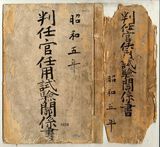 昭和五年
判任官任用試験関係書
判任官任用試験関係書
昭和五年